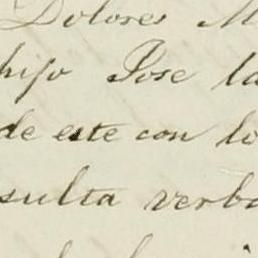 Dolores M
hijo Jose la
de este con lo
sulta verba